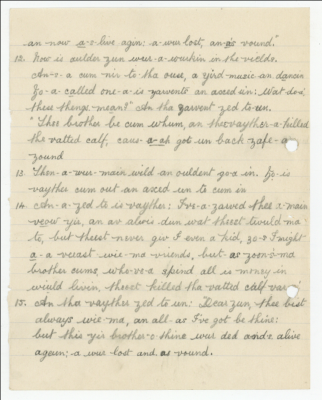 an now a-s-live agin; a-wur lost, an-a's vound."
12. Now is oulder zun wur-a-workin in the vields.
An-s-a cum nir to tha ouse, a yird music an dancin
Zo-a-called one-a-is zarvents an asced un; Wat do's
these things meant" An tha zarvent zed to-un.
"Thee brother be cum whum, an thee-vayther-a-killed
the vatted calf, caus-a-ah got un back zafe-a-
zound
13. Then-a-wur-main wild an ouldent go-a in. Zo is-
vayther cum out an asced un to cum in
14. An-a-zed to is-vayther: I've-a-zarved thee a-main
veow yir, an av alwis dun wat theest twuld-ma
to, but theest-never giv I even a kid, zo-s I might
a-a-veast wie-ma-vriends, but-as zoon-s-ma
brother cums, who-ve-a spend all is money in
wiuld livin, theest killed tha vatted calf var-
15. An tha vayther zed to un: Dear zun, thee bist
always wie-ma, an all-as I've got be thine:
but this yir brother-s-thine wur ded and-s alive
again; a wur lost and as vound.